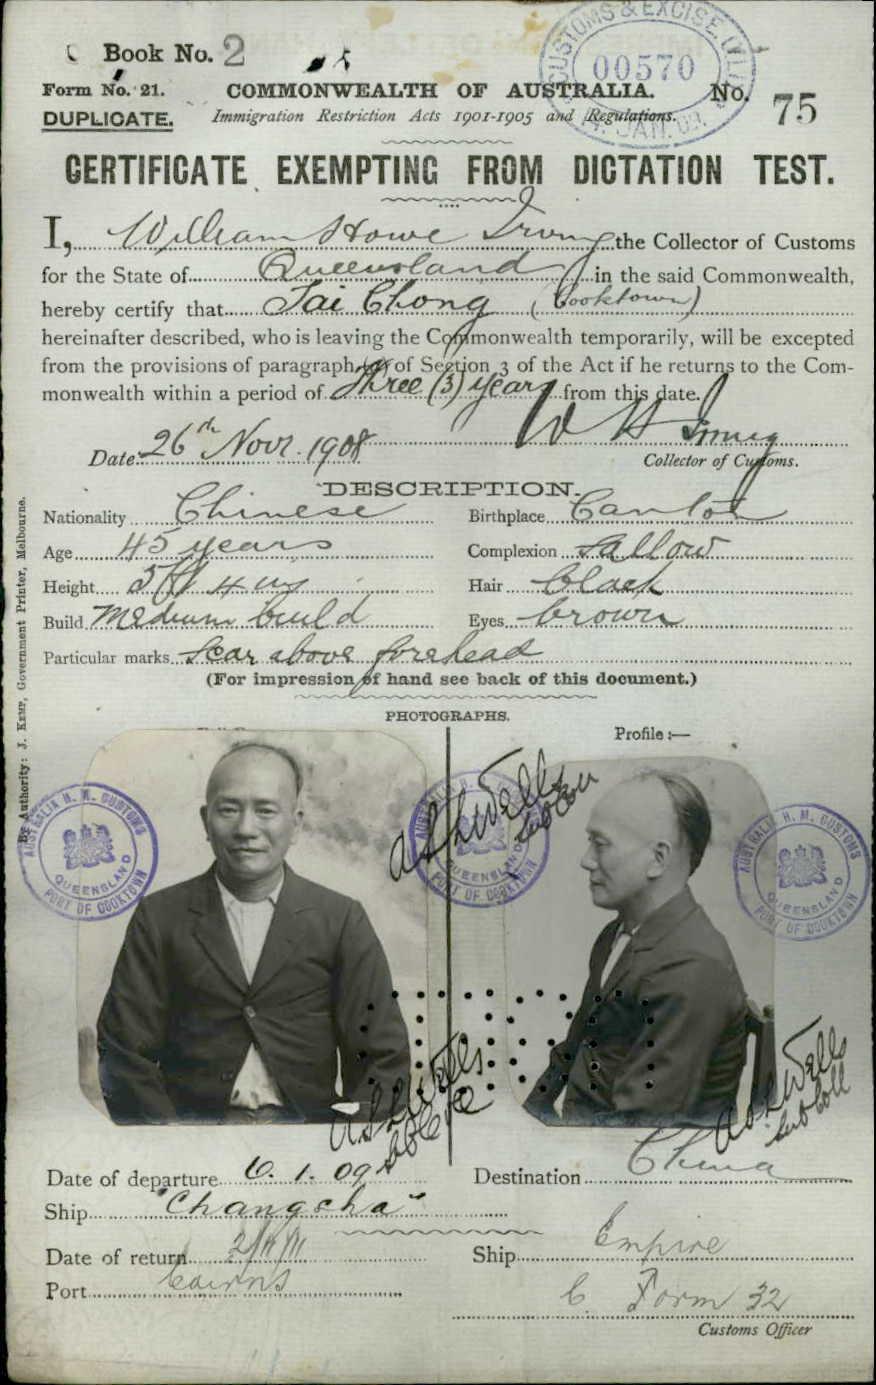 Book No. 2
Form No. 21.
COMMONWEALTH OF AUSTRALIA.
No. 75
DUPLICATE.
Immigration Restriction Acts 1901-1905 and Regulations.
CUSTOMS & EXCISE
00570
JAN. 09
CERTIFICATE EXEMPTING FROM DICTATION TEST.
I, William Howe Irving the Collector of Customs
for the State of Queensland in the said Commonwealth,
hereby certify that Tai Chong (Cooktown)
hereinafter described, who is leaving the Commonwealth temporarily, will be excepted
from the provisions of paragraph of Section 3 of the Act if he returns to the Com-
monwealth within a period of three (3) years from this date.
W H Irving
Date 26th Novr. 1908
Collector of Customs.
DESCRIPTION.
Nationality Chinese
Birthplace Canton
Age 45 years
Complexion Sallow
Height 5ft 4 ins
Hair black
Build Medium build
Eyes brown
Particular marks Scar above forehead
(For impression of hand see back of this document.)
By Authority: J. KEMP, Government Printer, Melbourne.
PHOTOGRAPHS.
Profile :—
AUSTRALIA H. M. CUSTOMS
QUEENSLAND
PORT OF COOKTOWN
QUEENSLAND
AUSTRALIA H. M. CUSTOMS
QUEENSLAND
PORT OF COOKTOWN
Date of departure 6. 1. 09
Destination China
Ship "Changsha"
Date of return 2/11/11
Ship Empire
Port Cairns
C. Form 32
Customs Officer